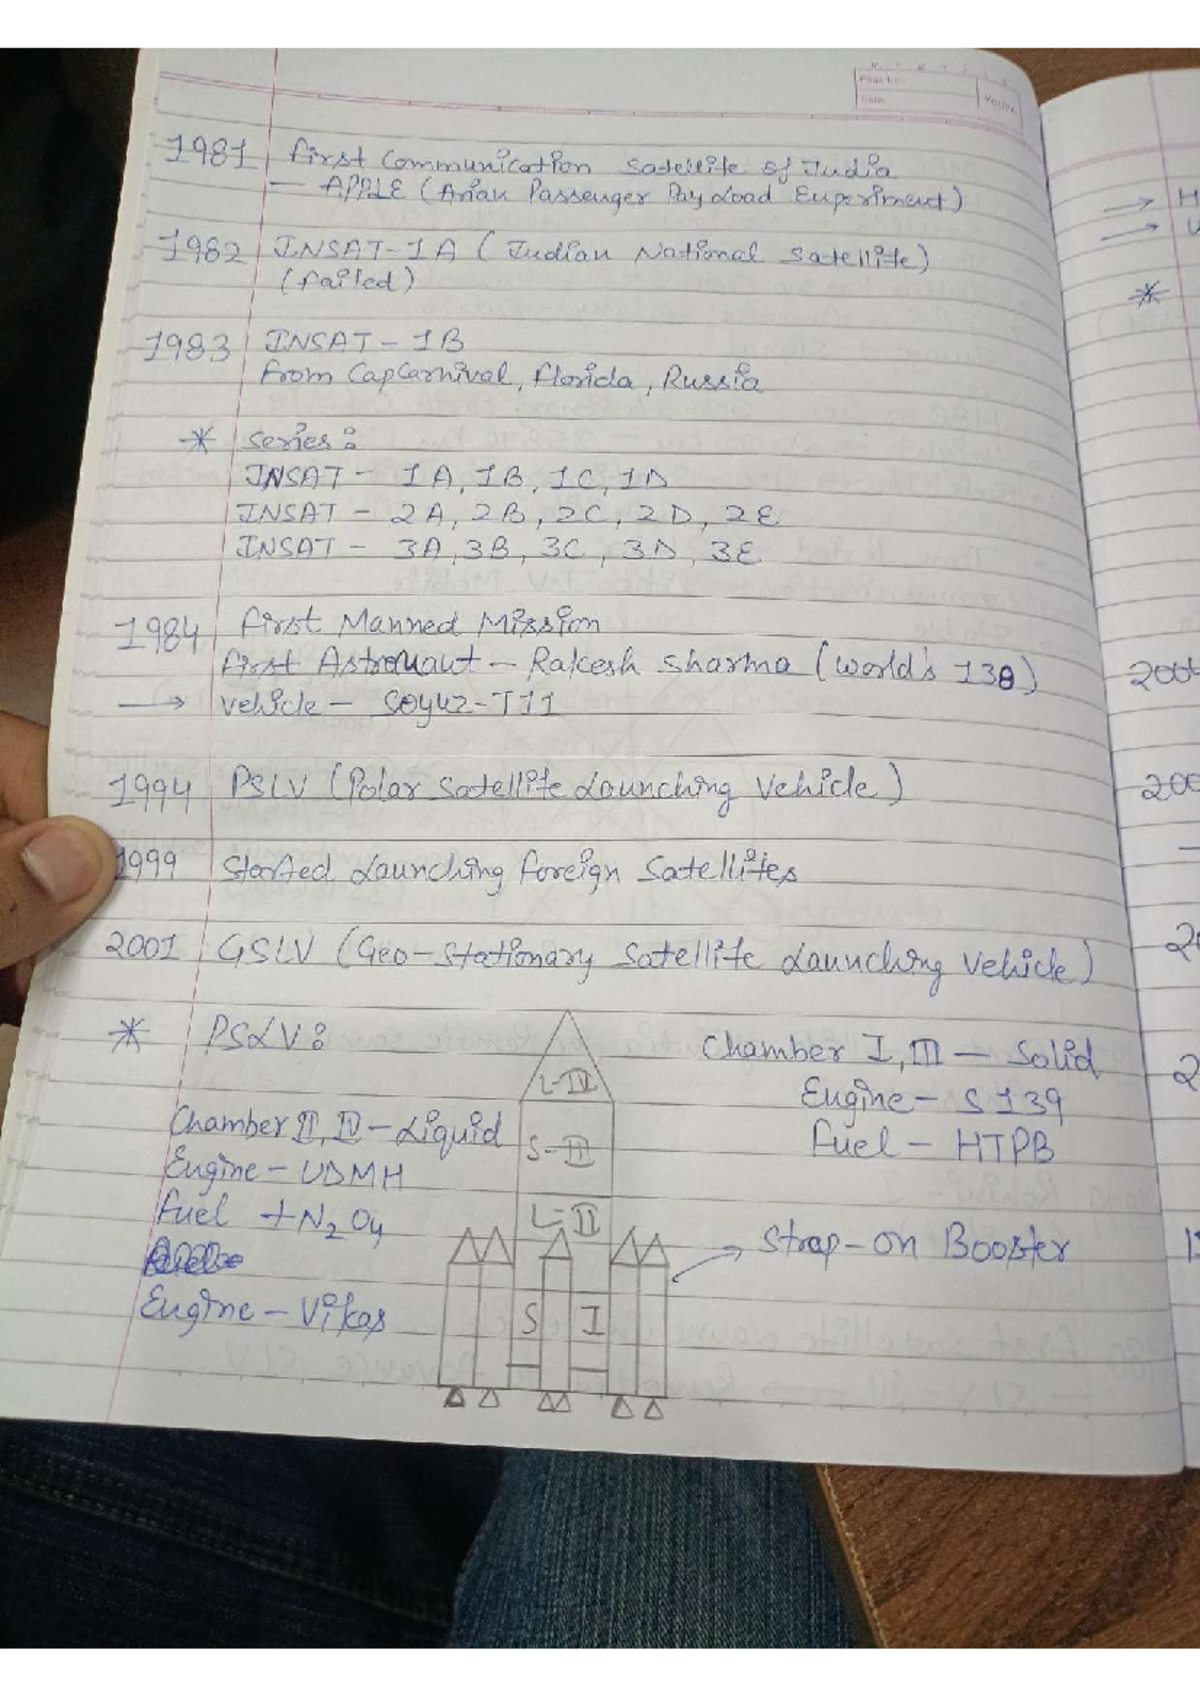 Page No.
Date
YOUVA
1981 First Communication Satellite of India
— APPLE (Arian Passenger Pay Load Experiment)
1982 INSAT-1A (Indian National Satellite)
(failed)
1983 INSAT - 1B
From CapCarnival, Florida, Russia
* Series:
INSAT - 1A, 1B, 1C, 1D
INSAT - 2A, 2B, 2C, 2D, 2E
INSAT - 3A, 3B, 3C, 3D, 3E
1984 First Manned Mission
First Astronaut - Rakesh Sharma (World's 138)
→ Vehicle - Soyuz-T11
1994 PSLV (Polar Satellite Launching Vehicle)
1999 Started Launching Foreign Satellites
2001 GSLV (Geo-Stationary Satellite Launching Vehicle)
* PSLV:
Chamber II, IV - Liquid
Engine - UDMH
Fuel + N2O4
Engine - Vikas
L-IV
S-III
L-II
S I
Chamber I, III - Solid
Engine - S139
Fuel - HTPB
→ Strap-on Booster